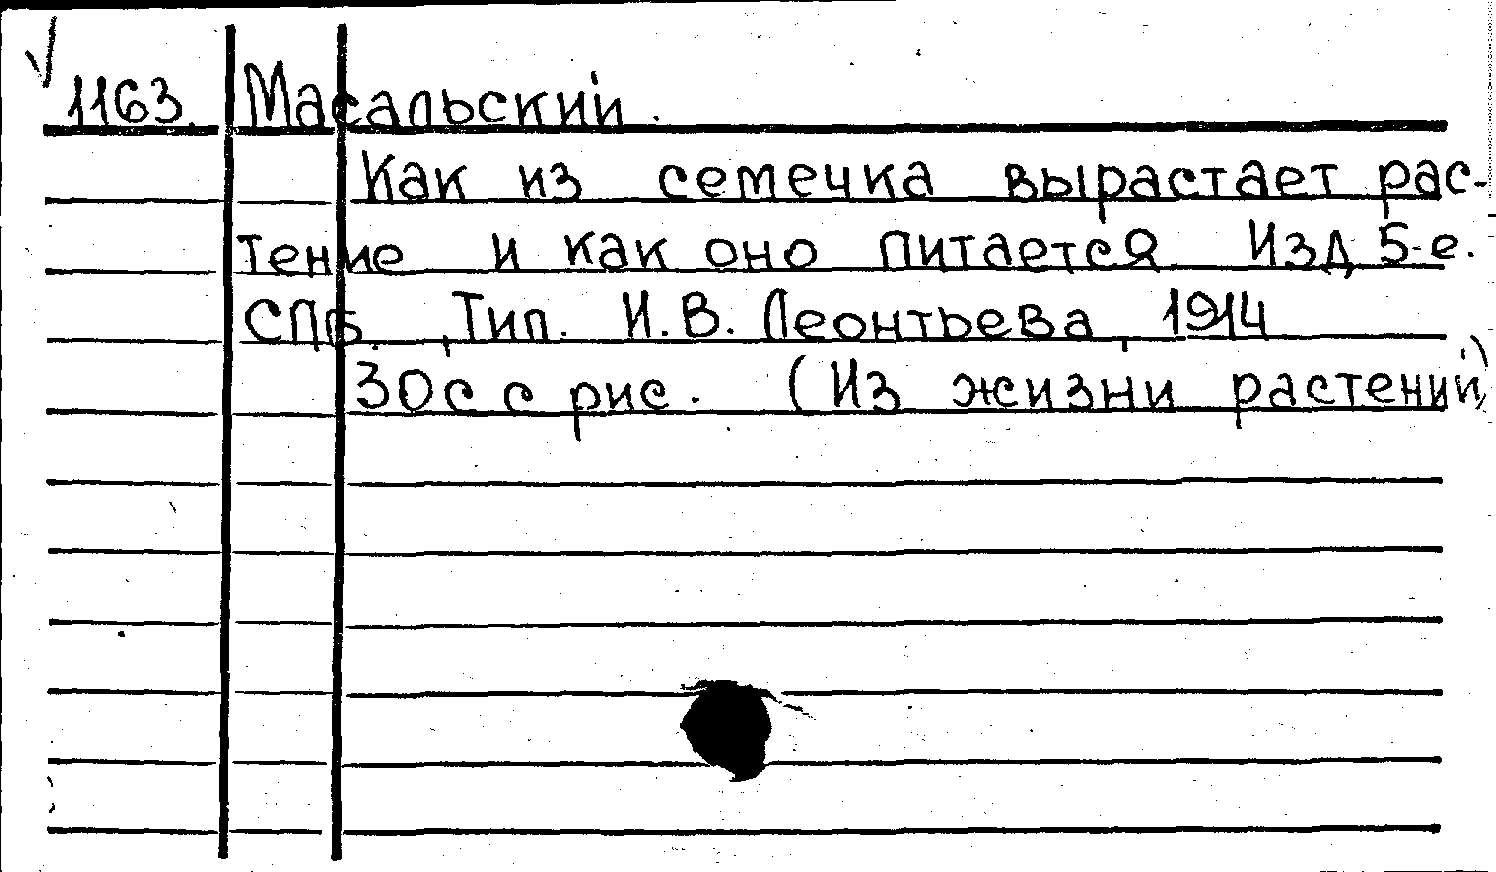 1163. Масальский.
Как из семечка вырастает рас-
тение и как оно питается Изд 5-е.
СПб., Тип. И.В. Леонтьева, 1914
30с с рис. (Из жизни растений)